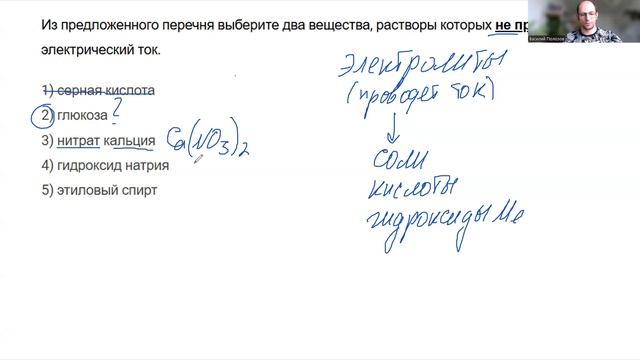 Из предложенного перечня выберите два вещества, растворы которых не пр
электрический ток.
1) серная кислота
2) глюкоза ?
3) нитрат кальция Ca(NO3)2
4) гидроксид натрия
5) этиловый спирт
электролиты
(проводят ток)
соли
кислоты
гидроксиды Ме
Василий Полозов